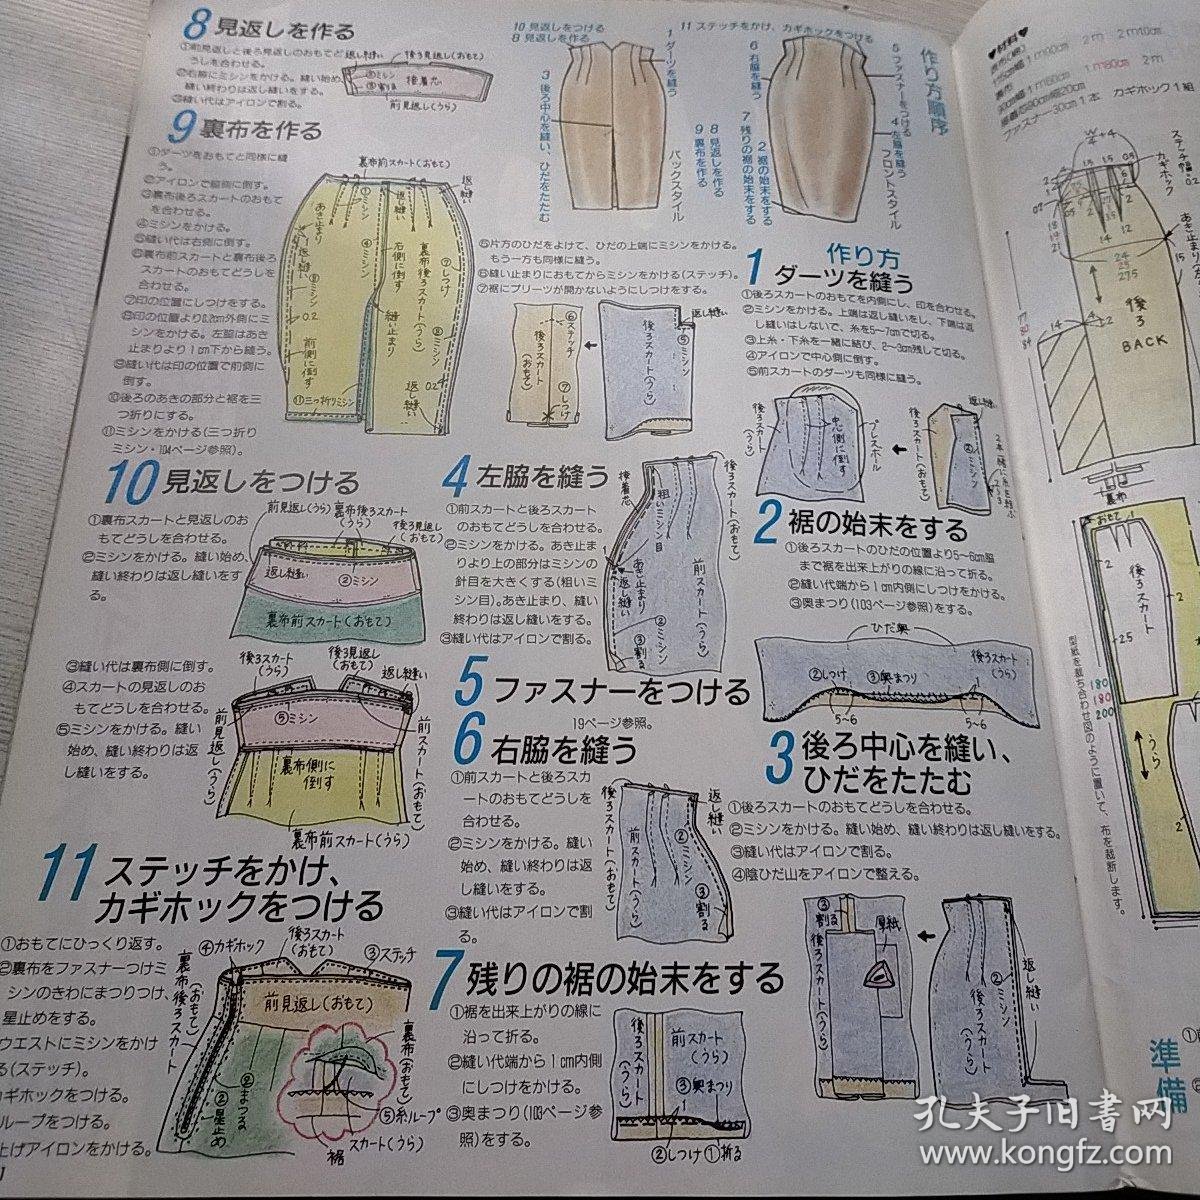 8 見返しを作る
①前見返しと後ろ見返しのおもてど
うしを合わせる。
②右脇にミシンをかける。縫い始め、
縫い終わりは返し縫いをする。
③縫い代はアイロンで割る。
返し縫い
後ろ見返し(おもて)
②ミシン
③割る
接着芯
前見返し(うら)
9 裏布を作る
①ダーツをおもてと同様に縫
う。
②アイロンで脇側に倒す。
③裏布後ろスカートのおもて
を合わせる。
④ミシンをかける。
⑤縫い代は右側に倒す。
⑥裏布前スカートと裏布後ろ
スカートのおもてどうしを
合わせる。
⑦印の位置にしつけをする。
⑧印の位置より0.2cm外側にミ
シンをかける。左脇はあき
止まりより1cm下から縫う。
⑨縫い代は印の位置で前側に
倒す。
⑩後ろのあきの部分と裾を三
つ折りにする。
⑪ミシンをかける(三つ折り
ミシン・104ページ参照)。
裏布前スカート(おもて)
返し縫い
①ミシン
返し縫い
あき止まり
④ミシン
右側に倒す
裏布後ろスカート(うら)
⑦しつけ
返し縫い
⑧ミシン
0.2
縫い止まり
前側に倒す
⑧ミシン
0.2
返し縫い
⑪三つ折りミシン
10 見返しをつける
①裏布スカートと見返しのお
もてどうしを合わせる。
②ミシンをかける。縫い始め、
縫い終わりは返し縫いをす
る。
前見返し(うら)
裏布後ろスカート
(うら)
後ろ見返し
(おもて)
返し縫い
②ミシン
裏布前スカート(おもて)
③縫い代は裏布側に倒す。
④スカートの見返しのお
もてどうしを合わせる。
⑤ミシンをかける。縫い
始め、縫い終わりは返
し縫いをする。
後ろスカート
(うら)
後ろ見返し
(おもて)
返し縫い
⑤ミシン
前見返し(うら)
前スカート(おもて)
裏布側に
倒す
裏布前スカート(うら)
11 ステッチをかけ、
カギホックをつける
①おもてにひっくり返す。
②裏布をファスナーつけミ
シンのきわにまつりつけ、
星止めをする。
ウエストにミシンをかけ
る(ステッチ)。
カギホックをつける。
ループをつける。
上げアイロンをかける。
④カギホック
後ろスカート
(おもて)
③ステッチ
裏布後ろスカート
(おもて)
前見返し(おもて)
裏布(おもて)
②まつる
②星止め
⑤糸ループ
スカート(うら)
裾
10 見返しをつける
8 見返しを作る
1 ダーツを縫う
3 後ろ中心を縫い、ひだをたたむ
9 裏布を作る
8 見返しを作る
バックスタイル
11 ステッチをかけ、カギホックをつける
6 右脇を縫う
5 ファスナーをつける
7 残りの裾の始末をする
2 裾の始末をする
4 左脇を縫う
フロントスタイル
作り方順序
⑤片方のひだをよけて、ひだの上端にミシンをかける。
もう一方も同様に縫う。
⑥縫い止まりにおもてからミシンをかける(ステッチ)。
⑦裾にプリーツが開かないようにしつけをする。
⑥ステッチ
後ろスカート
(おもて)
⑦しつけ
返し縫い
⑤ミシン
後ろスカート(うら)
作り方
1 ダーツを縫う
①後ろスカートのおもてを内側にし、印を合わせる。
②ミシンをかける。上端は返し縫いをし、下端は返
し縫いはしないで、糸を5~7cmで切る。
③上糸・下糸を一緒に結び、2~3cm残して切る。
④アイロンで中心側に倒す。
⑤前スカートのダーツも同様に縫う。
後ろスカート
(うら)
中心側に倒す
プレスボール
後ろスカート
(おもて)
返し縫い
②ミシン
2本一緒に糸を結ぶ
2~3
2 裾の始末をする
①後ろスカートのひだの位置より5~6cm脇
まで裾を出来上がりの線に沿って折る。
②縫い代端から1cm内側にしつけをかける。
③奥まつり(103ページ参照)をする。
ひだ奥
後ろスカート
(うら)
②しつけ
③奥まつり
1
5~6
5~6
3 後ろ中心を縫い、
ひだをたたむ
①後ろスカートのおもてどうしを合わせる。
②ミシンをかける。縫い始め、縫い終わりは返し縫いをする。
③縫い代はアイロンで割る。
④陰ひだ山をアイロンで整える。
③割る
厚紙
後ろスカート(うら)
後ろスカート
(うら)
②ミシン
返し縫い
4 左脇を縫う
①前スカートと後ろスカート
のおもてどうしを合わせる。
②ミシンをかける。あき止ま
りより上の部分はミシンの
針目を大きくする(粗いミ
シン目)。あき止まり、縫い
終わりは返し縫いをする。
③縫い代はアイロンで割る。
接着芯
粗いミシン目
後ろスカート(おもて)
1
あき止まり
返し縫い
前スカート(うら)
②ミシン
③割る
5 ファスナーをつける
19ページ参照。
6 右脇を縫う
①前スカートと後ろスカ
ートのおもてどうしを
合わせる。
②ミシンをかける。縫い
始め、縫い終わりは返
し縫いをする。
③縫い代はアイロンで割
る。
後ろスカート(おもて)
前スカート(うら)
返し縫い
②ミシン
③割る
7 残りの裾の始末をする
①裾を出来上がりの線に
沿って折る。
②縫い代端から1cm内側
にしつけをかける。
③奥まつり(103ページ参
照)をする。
後ろスカート
(うら)
前スカート
(うら)
③奥まつり
②しつけ
①折る
♥材料♥
ファスナー30cm1本
カギホック1組
ステッチ幅0.2
カギホック
あき止まり
後ろ
BACK
裏布
おもて
後ろスカート
うら
型紙を裁ち合わせ図のように置いて、布を裁断します。
180
180
200
準備
孔夫子旧書网
www.kongfz.com